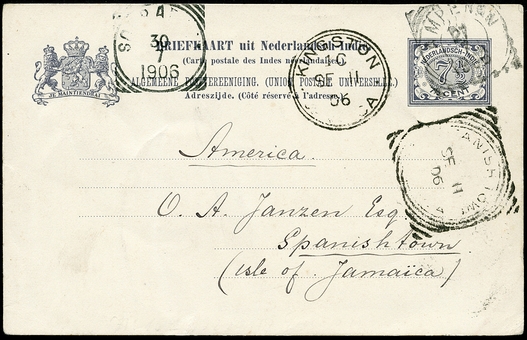 BRIEFKAART uit Nederlandsch-Indië
(Carte postale des Indes néerlandaises)
ALGEMEENE POSTVEREENIGING. (UNION POSTALE UNIVERSELLE.)
Adreszijde. (Côté réservé à l'adresse)
JE MAINTIENDRAI
30
7
1906
KINGSTON
C
SE 11
06
A
NEDERLANDSCH-INDIË
7½
CENT
ANISH TOWN
SE 11
06
A
America.
O. A. Janzen Esq
Spanishtown
(Isle of Jamaïca)